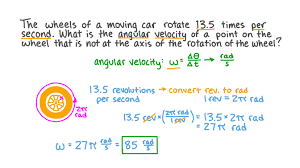 The wheels of a moving car rotate 13.5 times per
second. What is the angular velocity of a point on the
wheel that is not at the axis of the rotation of the wheel?
angular velocity: ω = Δθ/Δt → rad/s
13.5 revolutions → convert rev. to rad
per second
1 rev = 2π rad
2π rad
13.5 rev/s × (2π rad/1 rev) = 13.5 × 2π rad
= 27π rad
ω = 27π rad/s = 85 rad/s